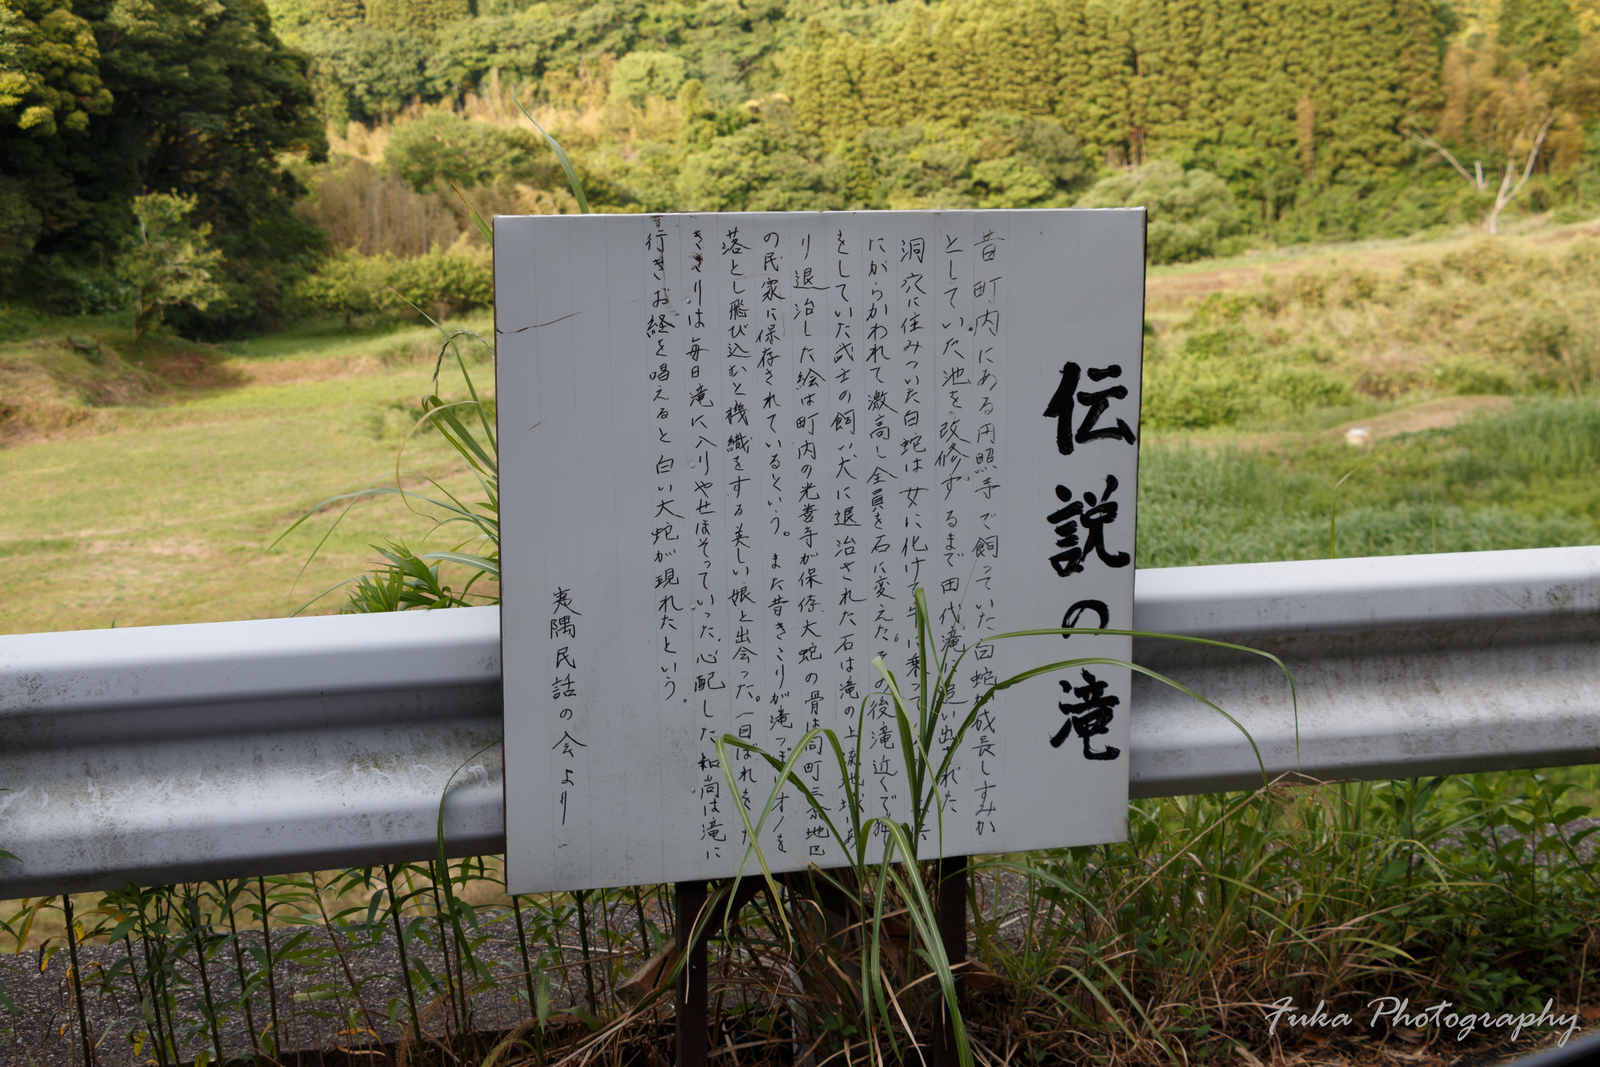 伝説の滝
昔町内にある円照寺で飼っていた白蛇が成長しすみか
としていた池を改修するまで田代滝に追い出された
洞穴に住みついた白蛇は女に化けて牛に乗って
にがらかわれて激高し全員を石に変えた その後滝近くで
をしていた武士の飼い犬に退治された石は滝の上流地域にあ
り退治した絵は町内の光善寺が保存大蛇の骨は同町三条地区
の民家に保存されているという。また昔きこりが滝つぼにオノを
落とし飛び込むと機織をする美しい娘と出会った。一目ぼれをした
きこりは毎日滝に入りやせほそっていった心配した和尚は滝に
行きお経を唱えると白い大蛇が現れたという。
夷隅民話の会より
Fuka Photography